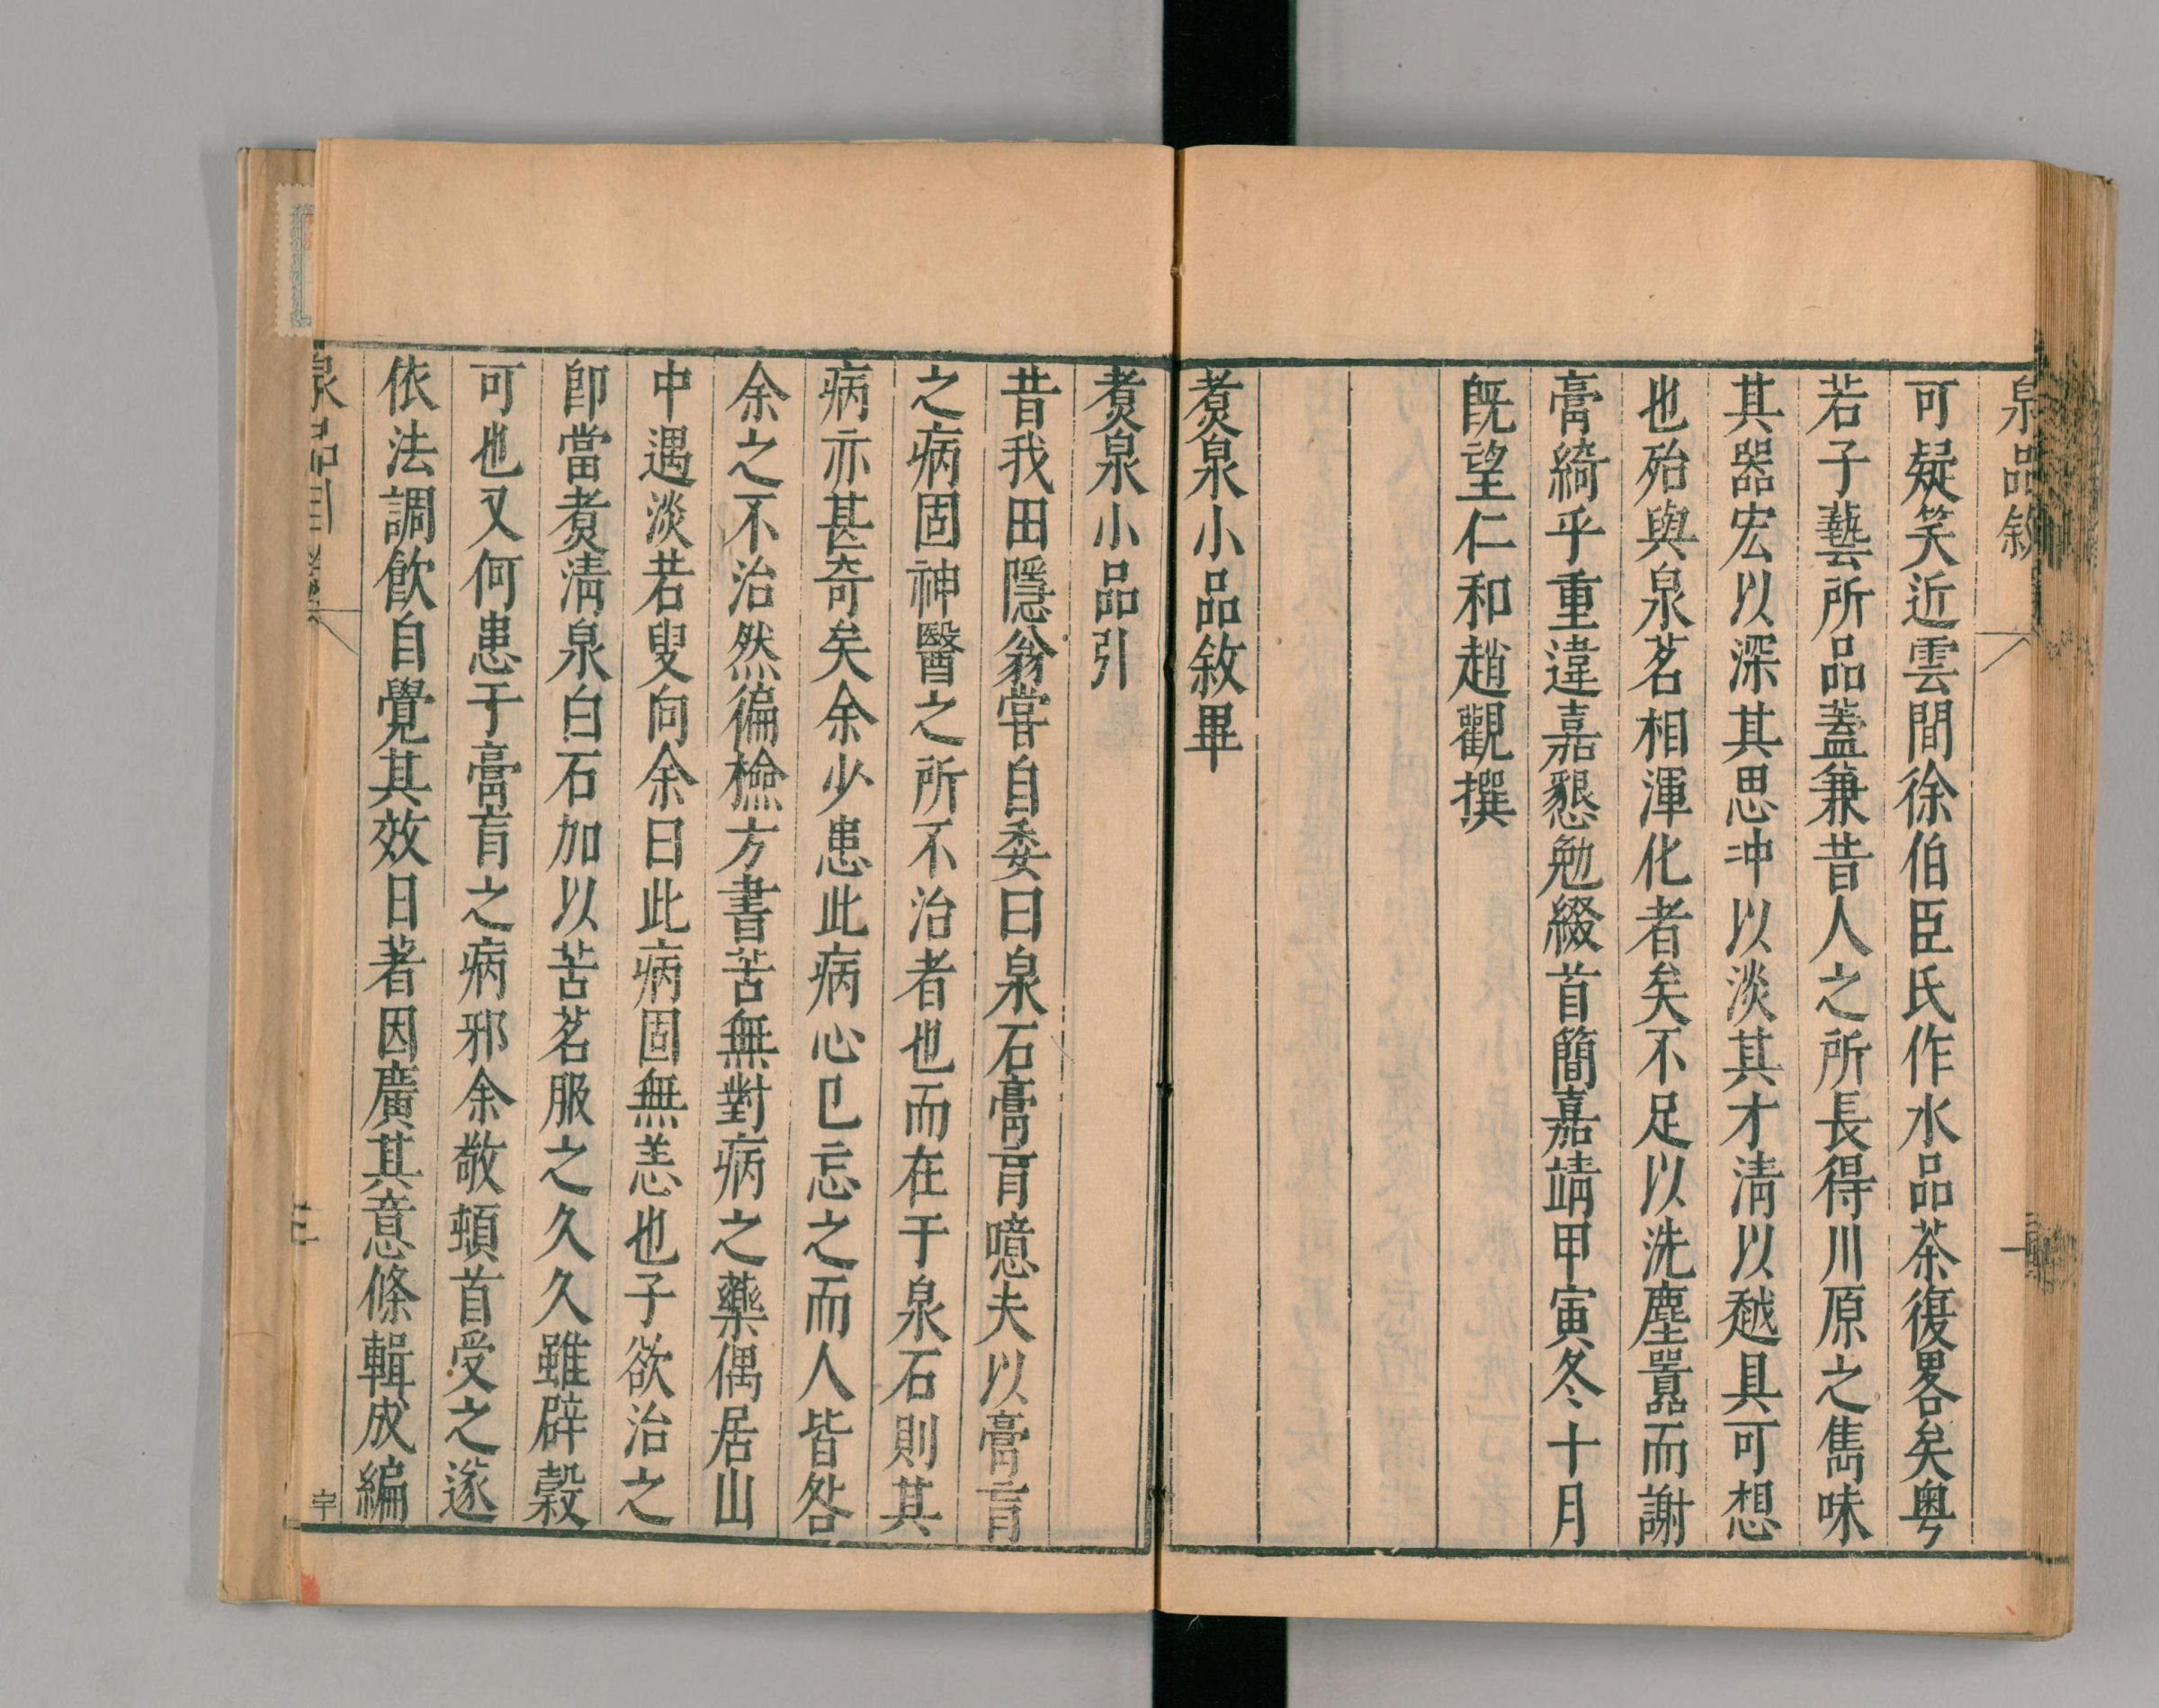 泉品敘
一
可疑笑近雲間徐伯臣氏作水品茶復畧矣粤
若子藝所品蓋兼昔人之所長得川原之雋味
其器宏以深其思冲以淡其才清以越具可想
也殆與泉茗相渾化者矣不足以洗塵囂而謝
膏綺乎重違嘉懇勉綴首簡嘉靖甲寅冬十月
旣望仁和趙觀撰
煑泉小品敘畢
煑泉小品引
昔我田隱翁嘗自委曰泉石膏肓噫夫以膏肓
之病固神醫之所不治者也而在于泉石則其
病亦甚奇矣余少患此病心已忘之而人皆咎
余之不治然徧檢方書苦無對病之藥偶居山
中遇淡若叟向余曰此病固無恙也子欲治之
卽當煑清泉白石加以苦茗服之久久雖辟穀
可也又何患于膏肓之病邪余敬頓首受之遂
依法調飲自覺其效日著因廣其意條輯成編
泉品引